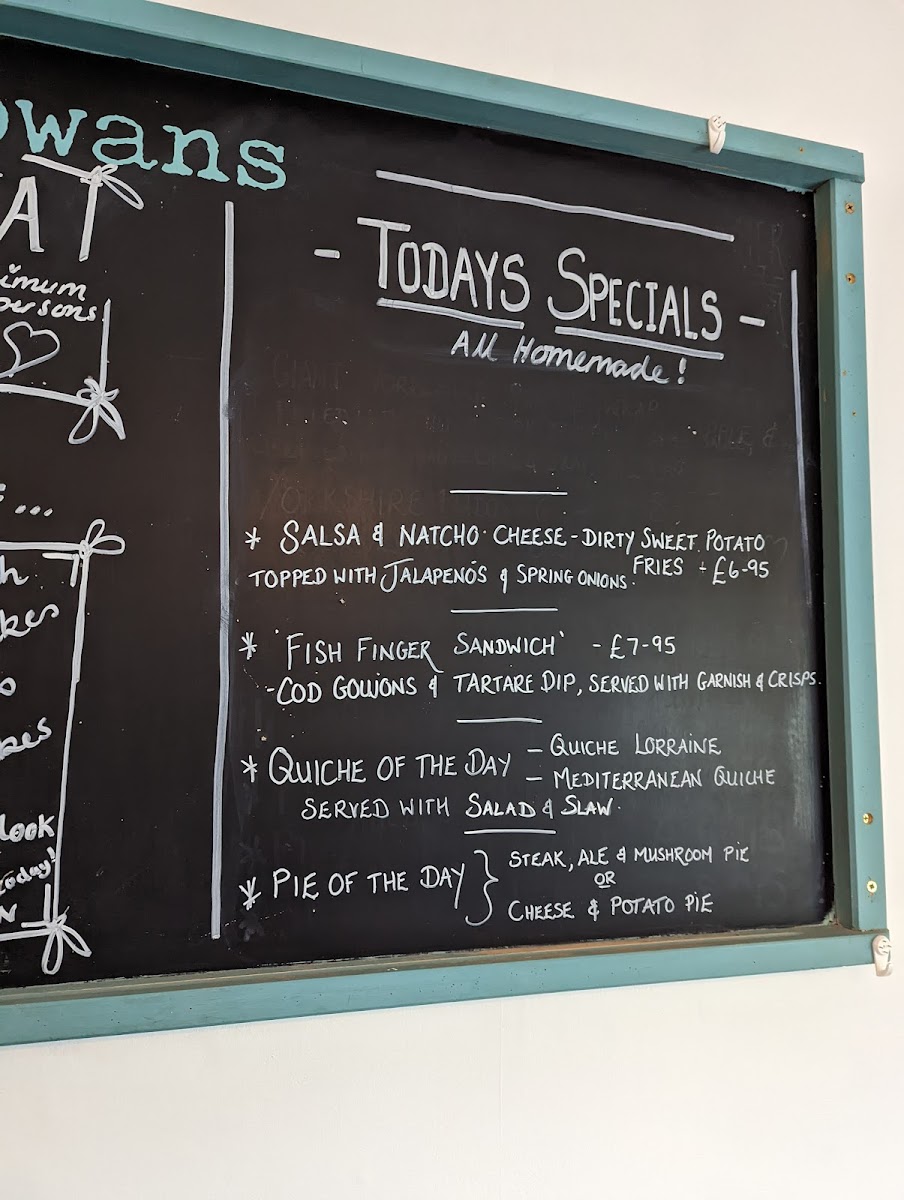 wans
A
imum
persons
- TODAYS SPECIALS -
All Homemade!
* SALSA & NATCHO CHEESE - DIRTY SWEET POTATO
FRIES - £6-95
TOPPED WITH JALAPENOS & SPRING ONIONS.
* 'FISH FINGER SANDWICH' - £7-95
- COD GOUJONS & TARTARE DIP, SERVED WITH GARNISH & CRISPS.
* QUICHE OF THE DAY - QUICHE LORRAINE
- MEDITERRANEAN QUICHE
SERVED WITH SALAD & SLAW.
* PIE OF THE DAY } STEAK, ALE & MUSHROOM PIE
OR
CHEESE & POTATO PIE
look
today!